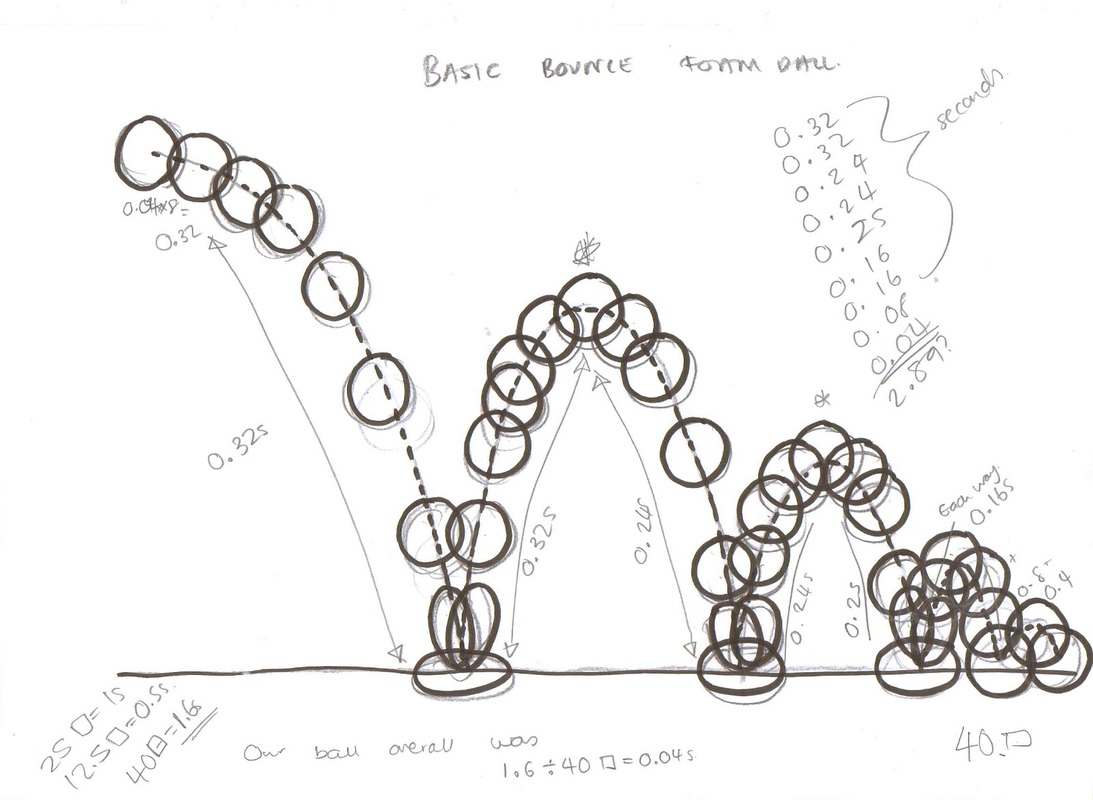 BASIC BOUNCE FOAM BALL.
0.32
0.32
0.24
0.24
0.25
0.16
0.16
0.08
0.04
2.89?
seconds.
0.04x8=
0.32
0.32s
0.32s
0.24s
0.24s
0.2s
Each way.
0.16s
0.8-
0.4
25□=1s
12.5□=0.5s.
40□=1.6s
Our ball overall was
1.6÷40□=0.04s.
40.□